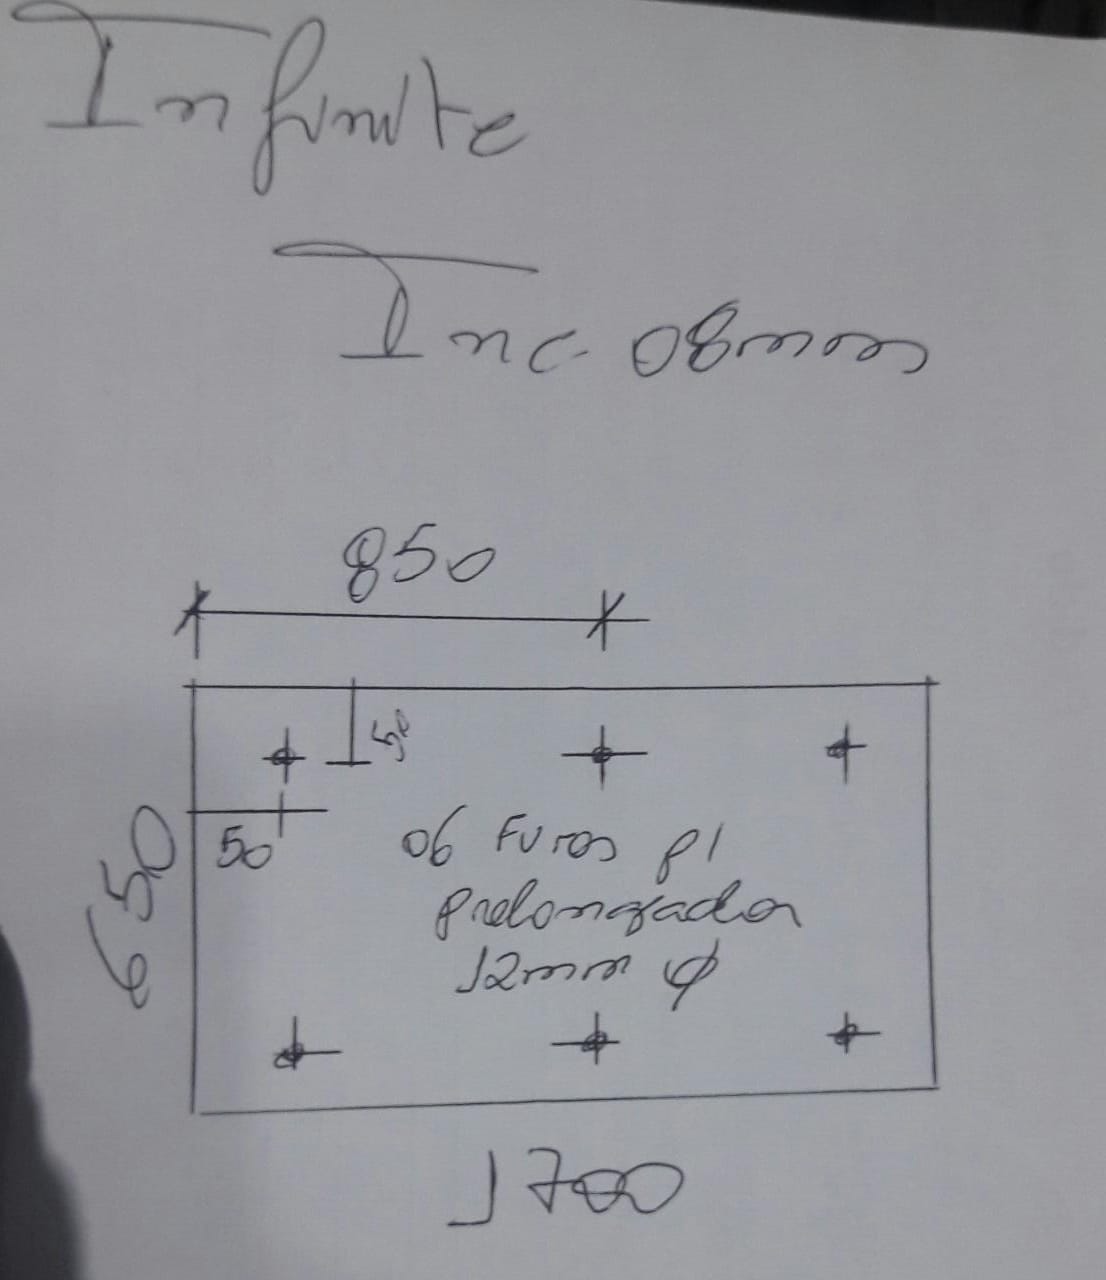 Infinite
Inc 08mm
850
50
50
650
06 Furos p/
prolongador
12mm ϕ
1700